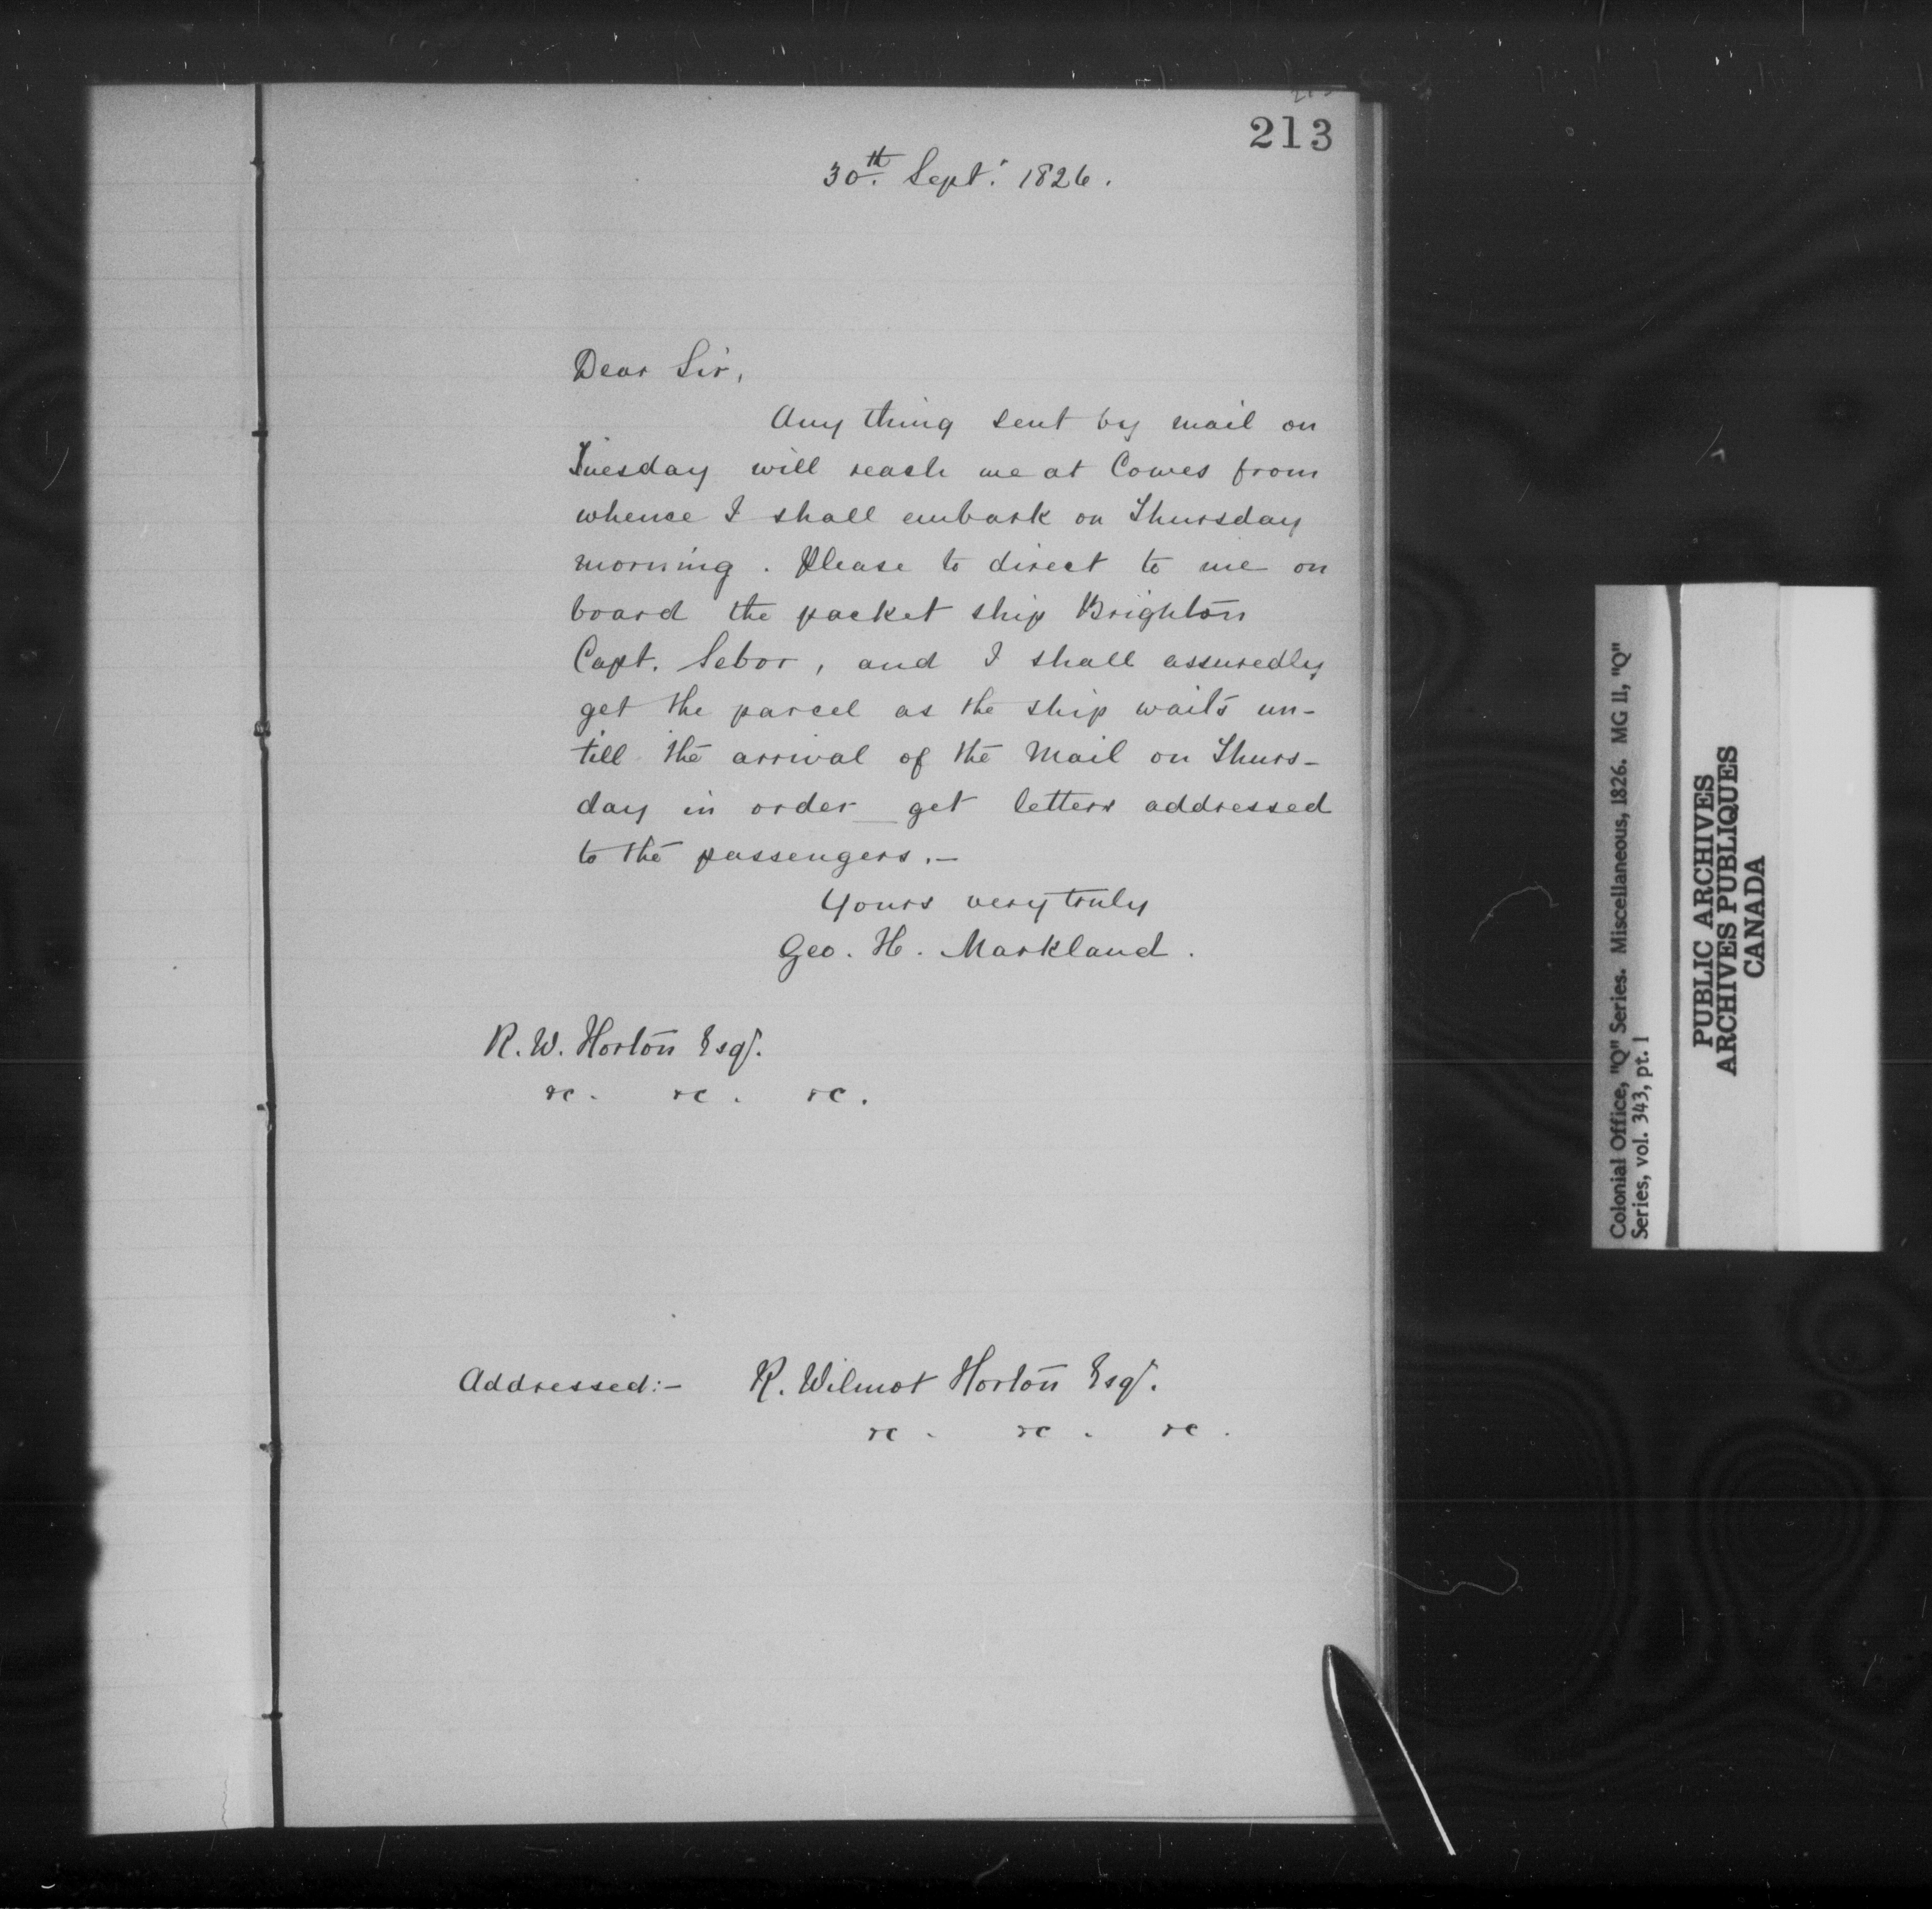 213
30th. Sept. 1826.
Dear Sir,
Any thing sent by mail on
Tuesday will reach me at Cowes from
whence I shall embark on Thursday
morning. Please to direct to me on
board the packet ship Brighton
Capt. Sebor, and I shall assuredly
get the parcel as the ship waits un-
till the arrival of the Mail on Thurs-
day in order __ get letters addressed
to the passengers.—
Yours very truly
Geo. H. Markland.
R. W. Horton Esqr.
&c. &c. &c.
Addressed:— R. Wilmot Horton Esqr.
&c. &c. &c.
Colonial Office, "Q" Series. Miscellaneous, 1826. MG 11, "Q"
Series, vol. 343, pt. 1
PUBLIC ARCHIVES
ARCHIVES PUBLIQUES
CANADA